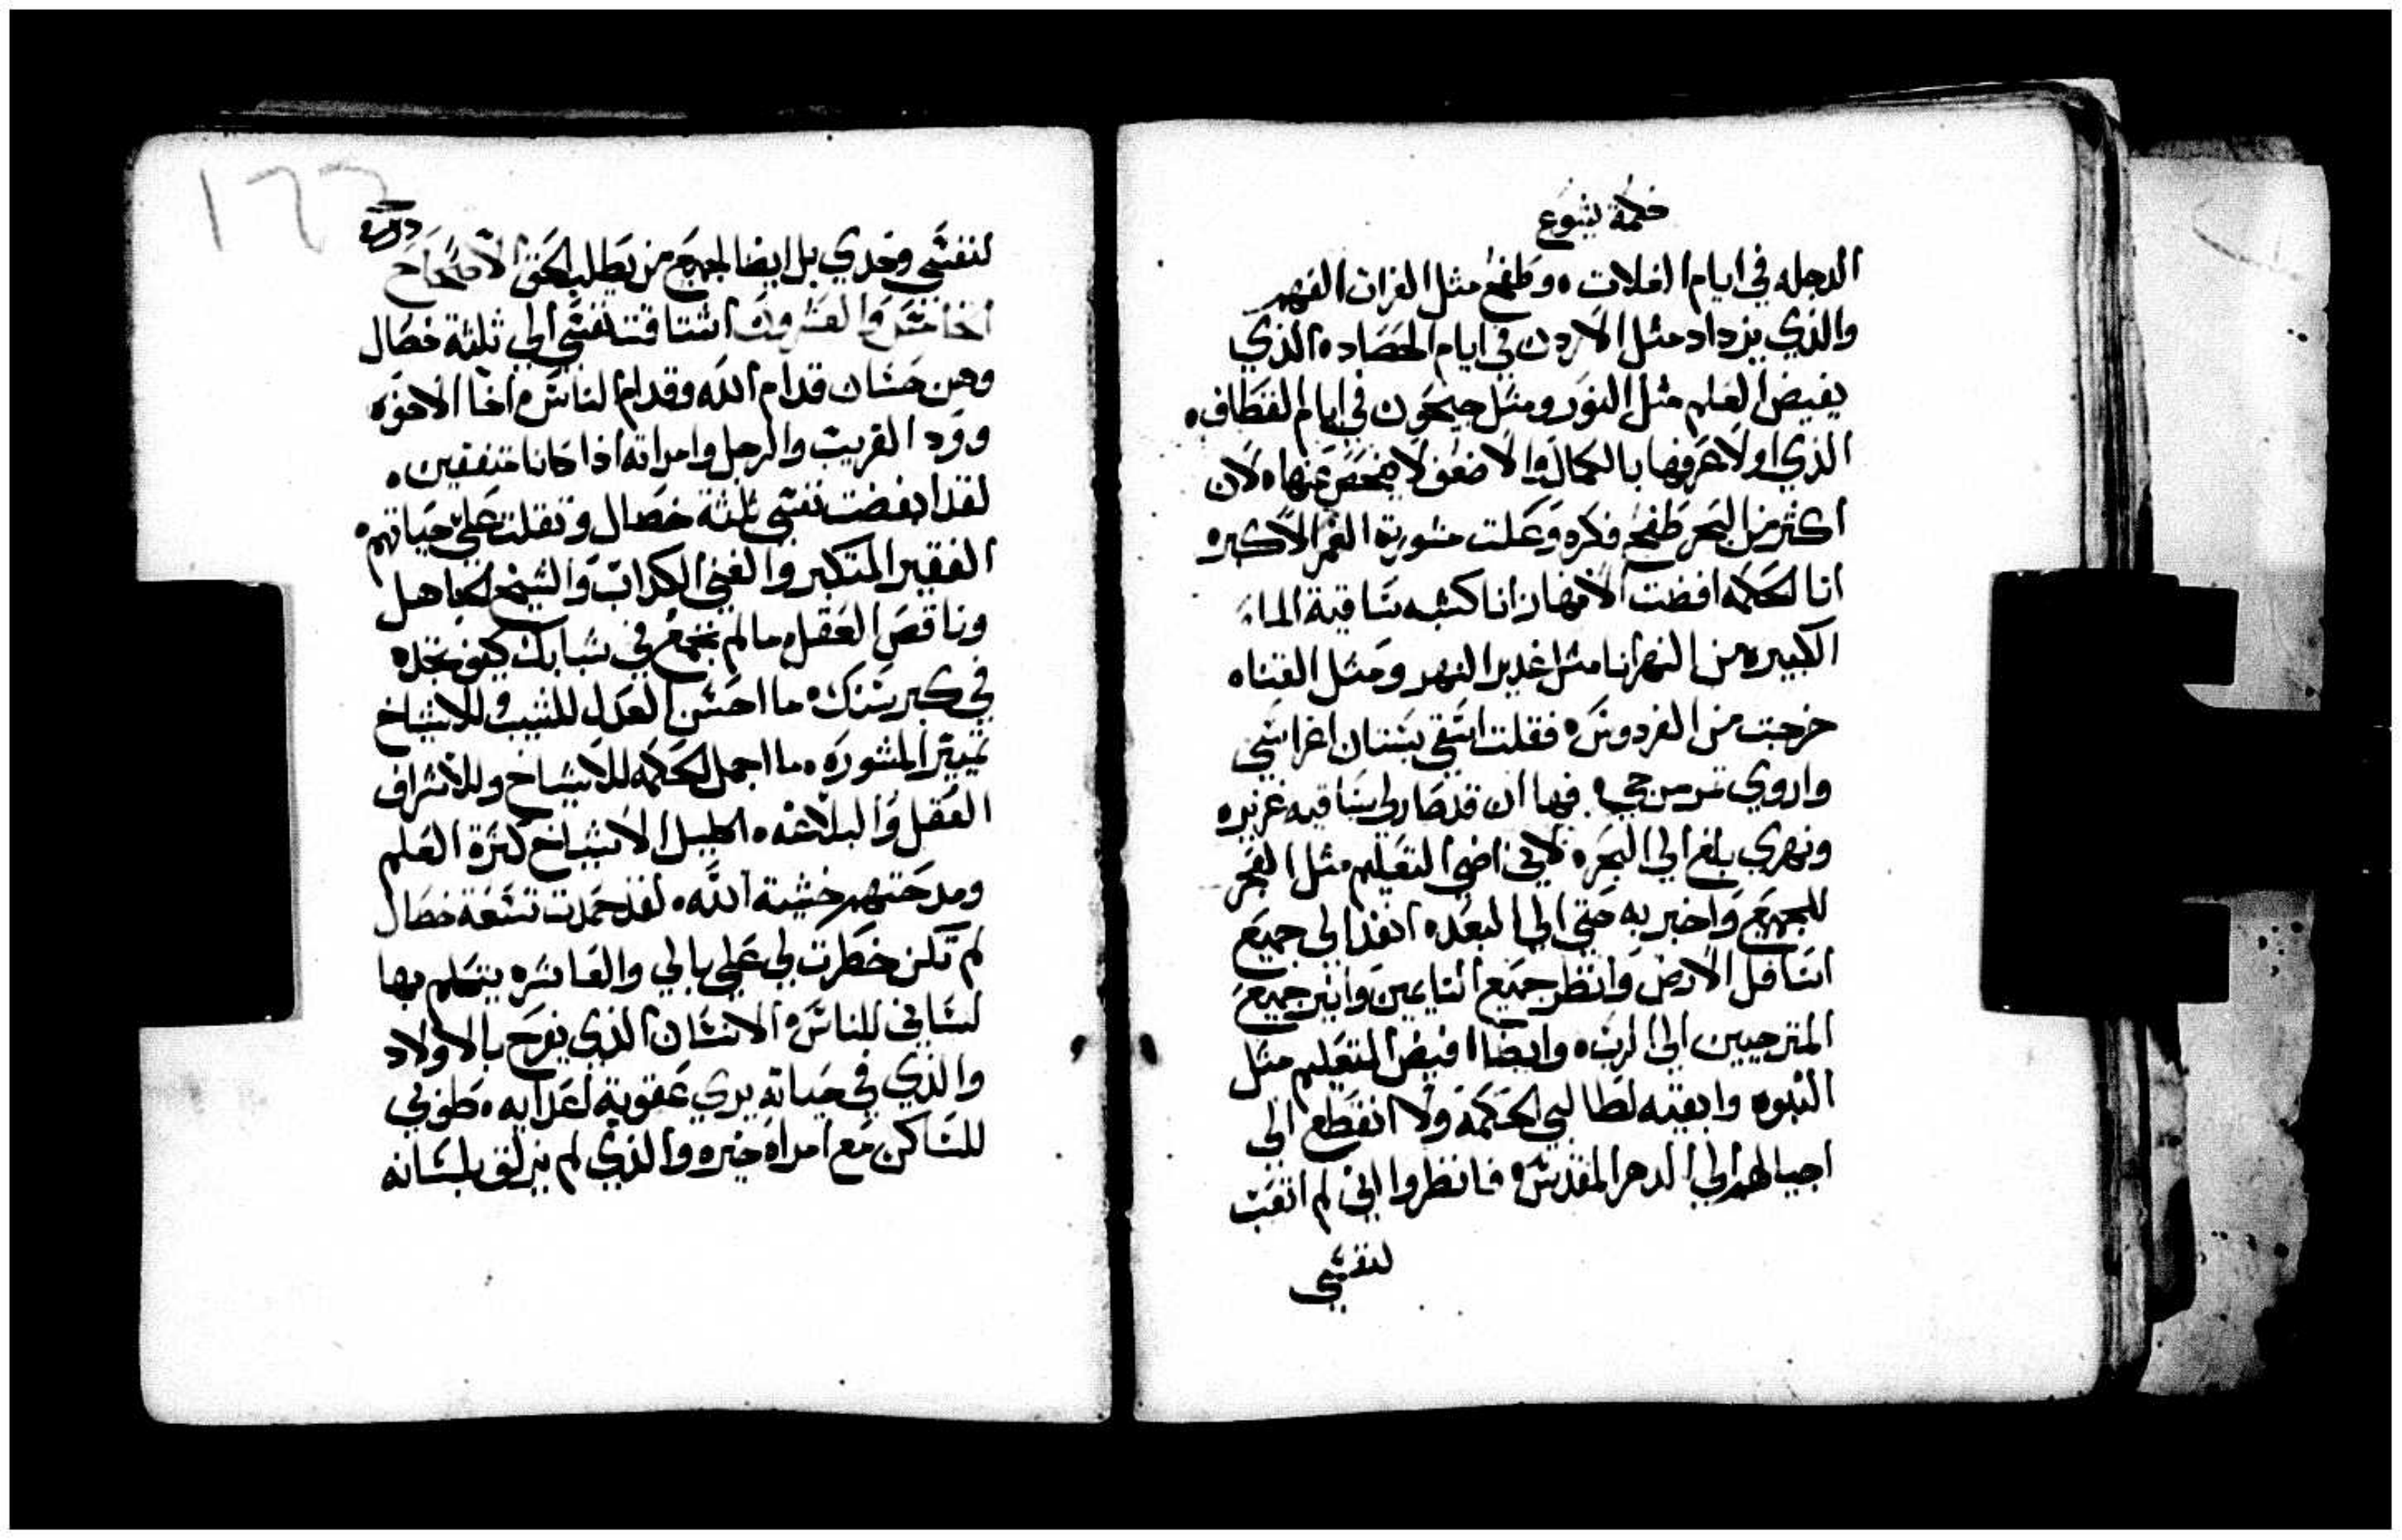 حكمة يشوع
الدجله في ايام الغلات ٠ وطفح مثل الفرات الفهم
والذي يزداد مثل الاردن في ايام الحصاد ٠ الذي
يفيض العلم مثل النور ومثل جيحون في ايام القطاف ٠
الذي اولا عرفها بالكمال والاضعف لا يفحص عنها ٠ لان
اكثر من البحر طفح فكره وعلت مشورته الغمر الاكبر ٠
انا الحكمه افضت الانهار انا كشبه ساقية الماء
الكبيره من النهر انا مثل غدير النهر ومثل القناه
خرجت من الفردوس ٠ فقلت اسقي بستان اغراسي
واروي مرجي ٠ فها ان قد صار لي ساقيه غزيره
ونهري بلغ الي البحر ٠ لاني اضي التعليم مثل الفجر
للجميع واخبر به حتي الي البعد ٠ انفذ الي جميع
اسافل الارض وانظر جميع النايمين وانير جميع
المترجيين الي الرب ٠ وايضا افيض التعليم مثل
النبوه وابقيه لطالبي الحكمة ولا انقطع الى
اجيالهم الي الدهر المقدس ٠ فانظروا اني لم اتعب
لنفسي
١٦٦
لنفسي وحدي بل ايضا لجميع من يطلب الحق الاصحاح
الخامس والعشرون اشتاقت نفسي الي ثلثة خصال
وهن حسان قدام الله وقدام الناس ٠ اخا الاخوه
وود القريب والرجل وامراته اذا كانا متفقين ٠
لقد ابغضت نفسي ثلثة خصال وثقلت علي حياتهم ٠
الفقير المتكبر والغني الكداب والشيخ الجاهل
وناقص العقل ما لم تجمع في شبابك كيف تجده
في كبر سنك ٠ ما احسن العدل للشيب وللاشياخ
تمييز المشوره ٠ ما اجمل الحكمه للاشياخ وللاشراف
العقل والبلاغه ٠ اكليل الاشياخ كثرة العلم
ومدحتهم خشية الله ٠ لقد حمدت تسعة خصال
لم تكن خطرت لي علي بالي والعاشره يتكلم بها
لساني للناس ٠ الانسان الذي يفرح بالاولاد
والذي في حياته يري عقوبة اعدايه ٠ طوبي
للساكن مع امراه خيره والذي لم يزلق بلسانه